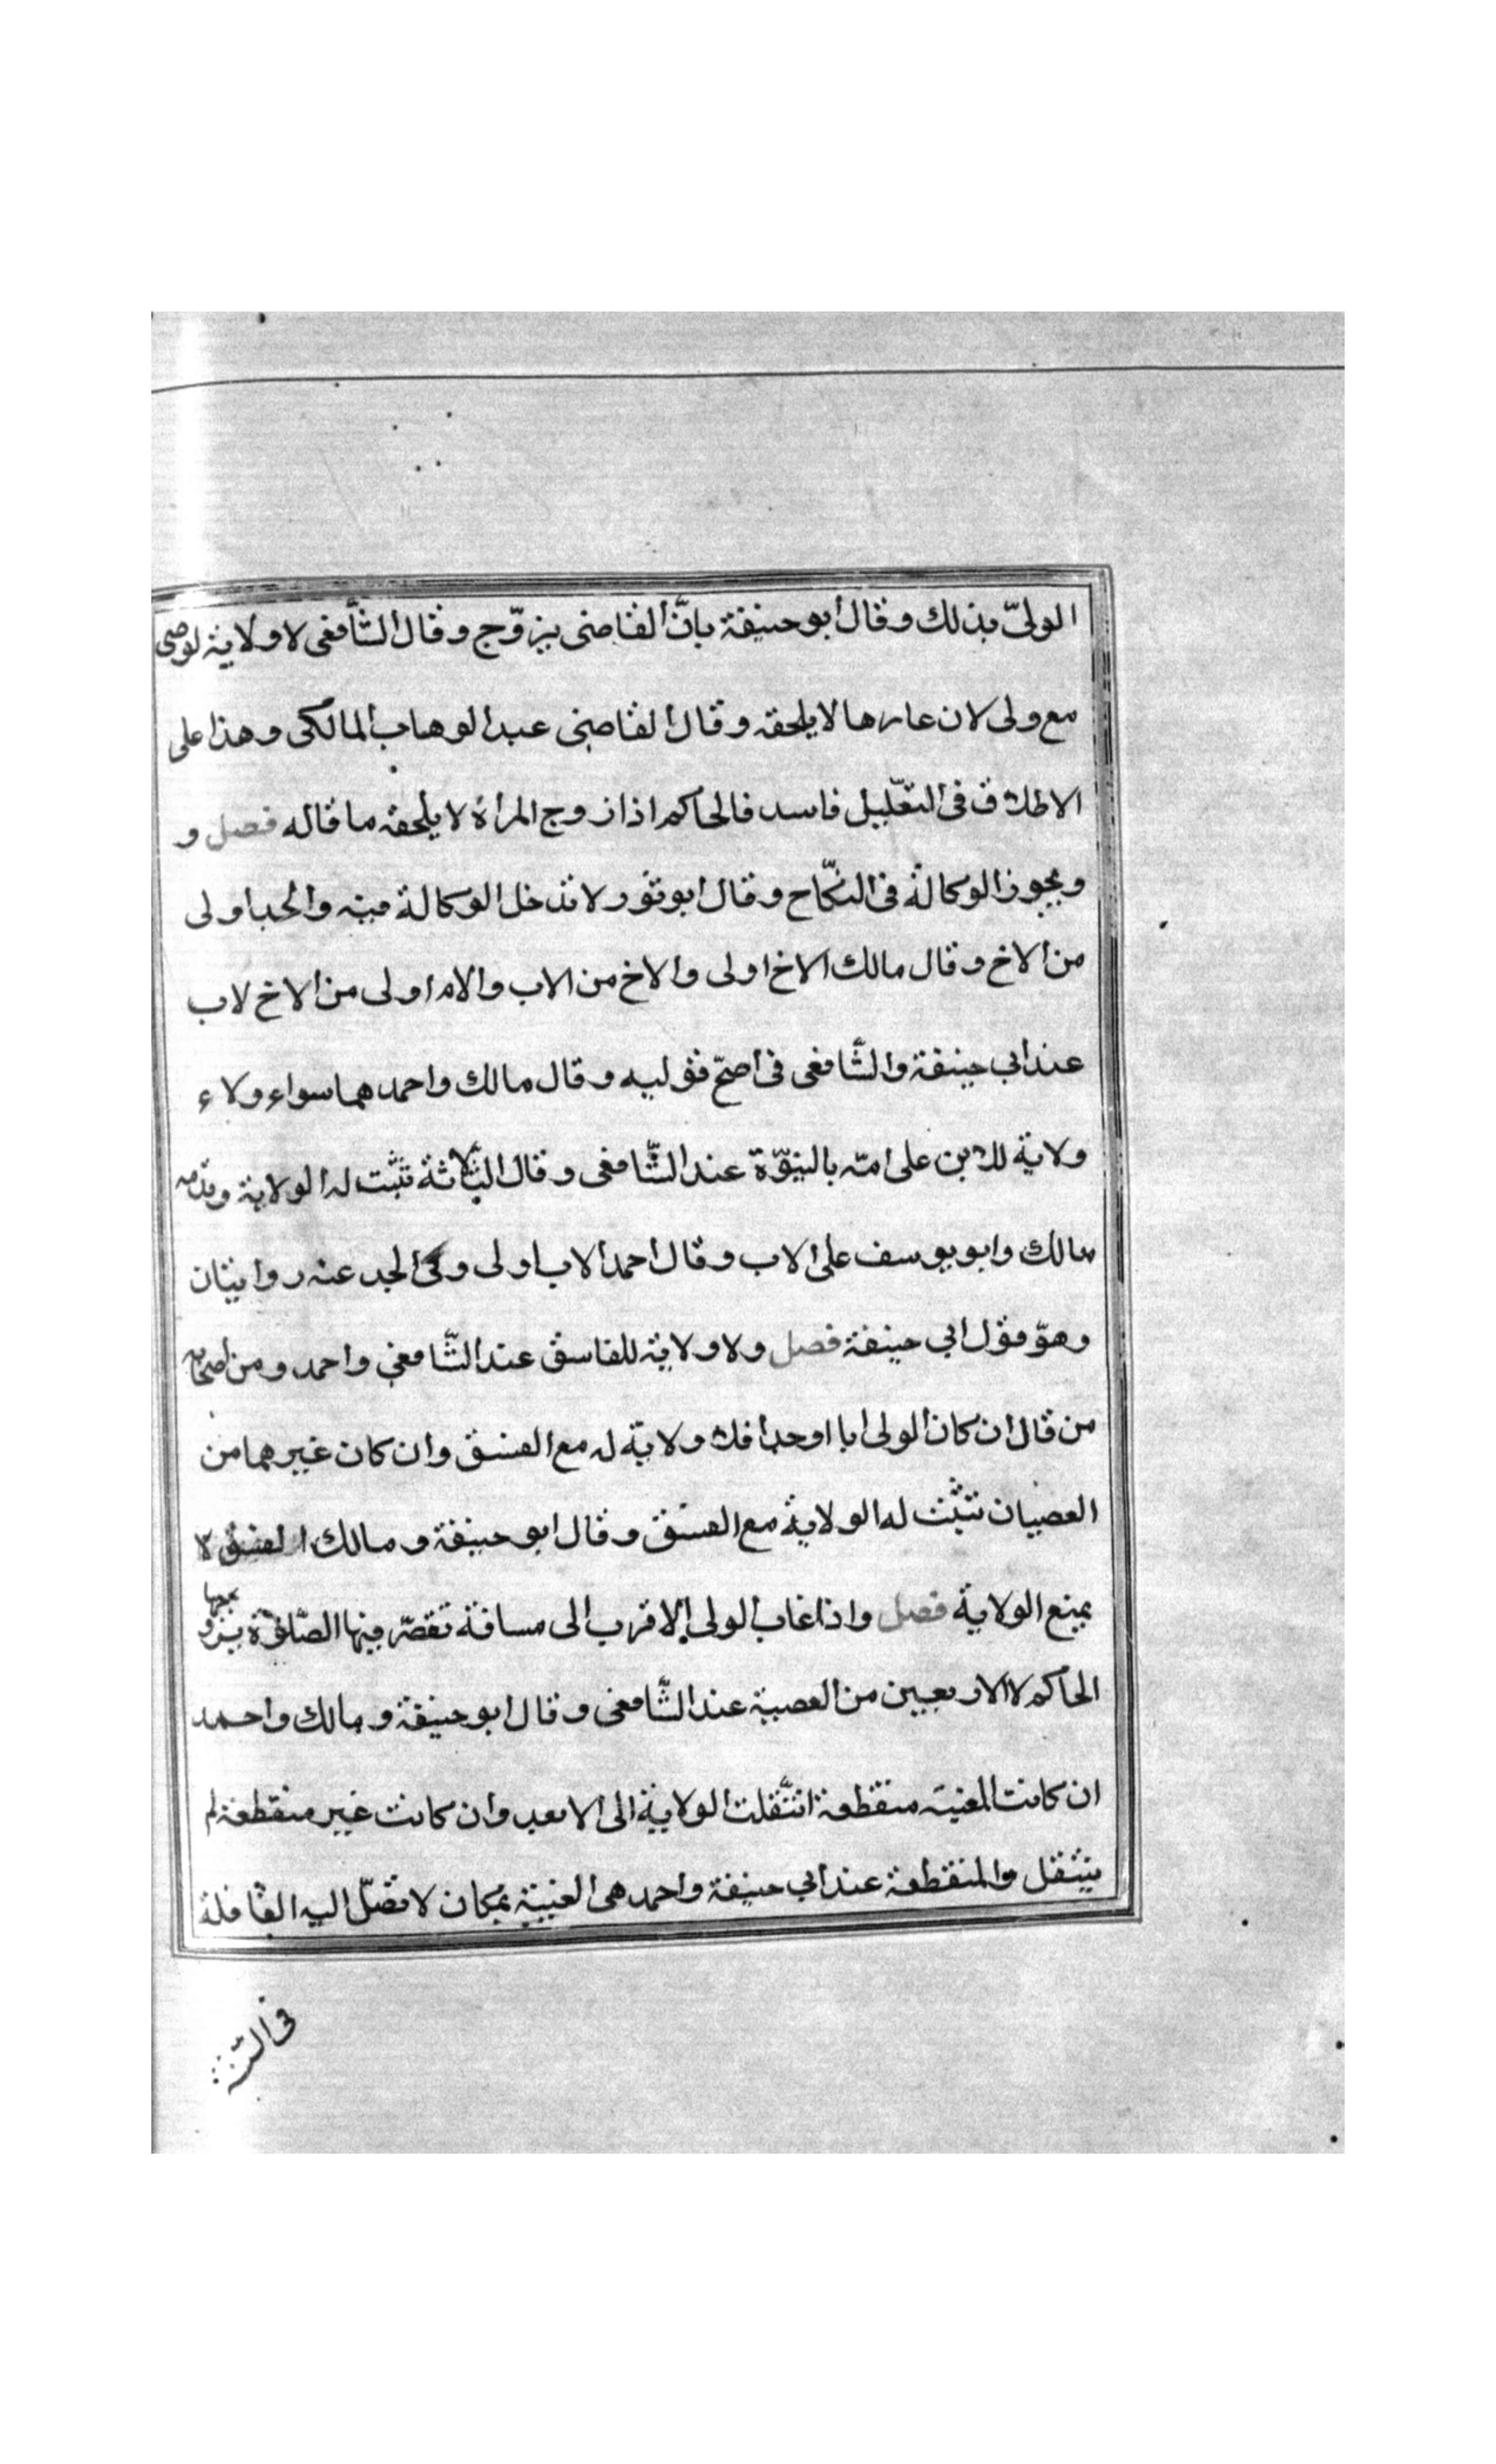 الولىّ بذلك وقال أبو حنيفة بانّ القاضى يزوّج وقال الشّافعى لا ولاية لوصى
مع ولى لان عارها لا يلحقه وقال القاضى عبد الوهاب المالكى وهذا على
الاطلاق فى التعّليل فاسد فالحاكم اذا زوج المرأة لا يلحقه ما قاله فصل و
ويجوز الوكالة فى النكّاح وقال ابو ثور لا تدخل الوكالة فيه والجد اولى
من الاخ وقال مالك الاخ اولى والاخ من الاب والام اولى من الاخ لاب
عند ابي حنيفة والشّافعى فى اصحّ قوليه وقال مالك واحمد هما سواء ولاء
ولاية للابن على امّه بالبنوّة عند الشّافعى وقال الثّلاثة تثبت له الولاية وقدمه
مالك وابو يوسف على الاب وقال احمد الاب اولى وفى الجد عنه روايتان
وهوّ قول ابي حنيفة فصل ولا ولاية للفاسق عند الشّافعي واحمد ومن اصحابه
من قال ان كان الولى ابا او جدا فلا ولاية له مع الفسق وان كان غيرهما من
العصبان تثبت له الولاية مع الفسق وقال ابو حنيفة ومالك الفسق لا
يمنع الولاية فصل واذا غاب الولى الاقرب الى مسافة تقصّر فيها الصّلوة يزو
يجها
الحاكم لا الاربعين من العصبة عند الشّافعى وقال ابو حنيفة ومالك واحمد
ان كانت الغيبة منقطعة انتّقلت الولاية الى الابعد وان كانت غير منقطعة لم
ينتقل والمنقطعة عند ابي حنيفة واحمد هى الغيبة بمكان لا تصّل اليه القافلة
فى السّنة